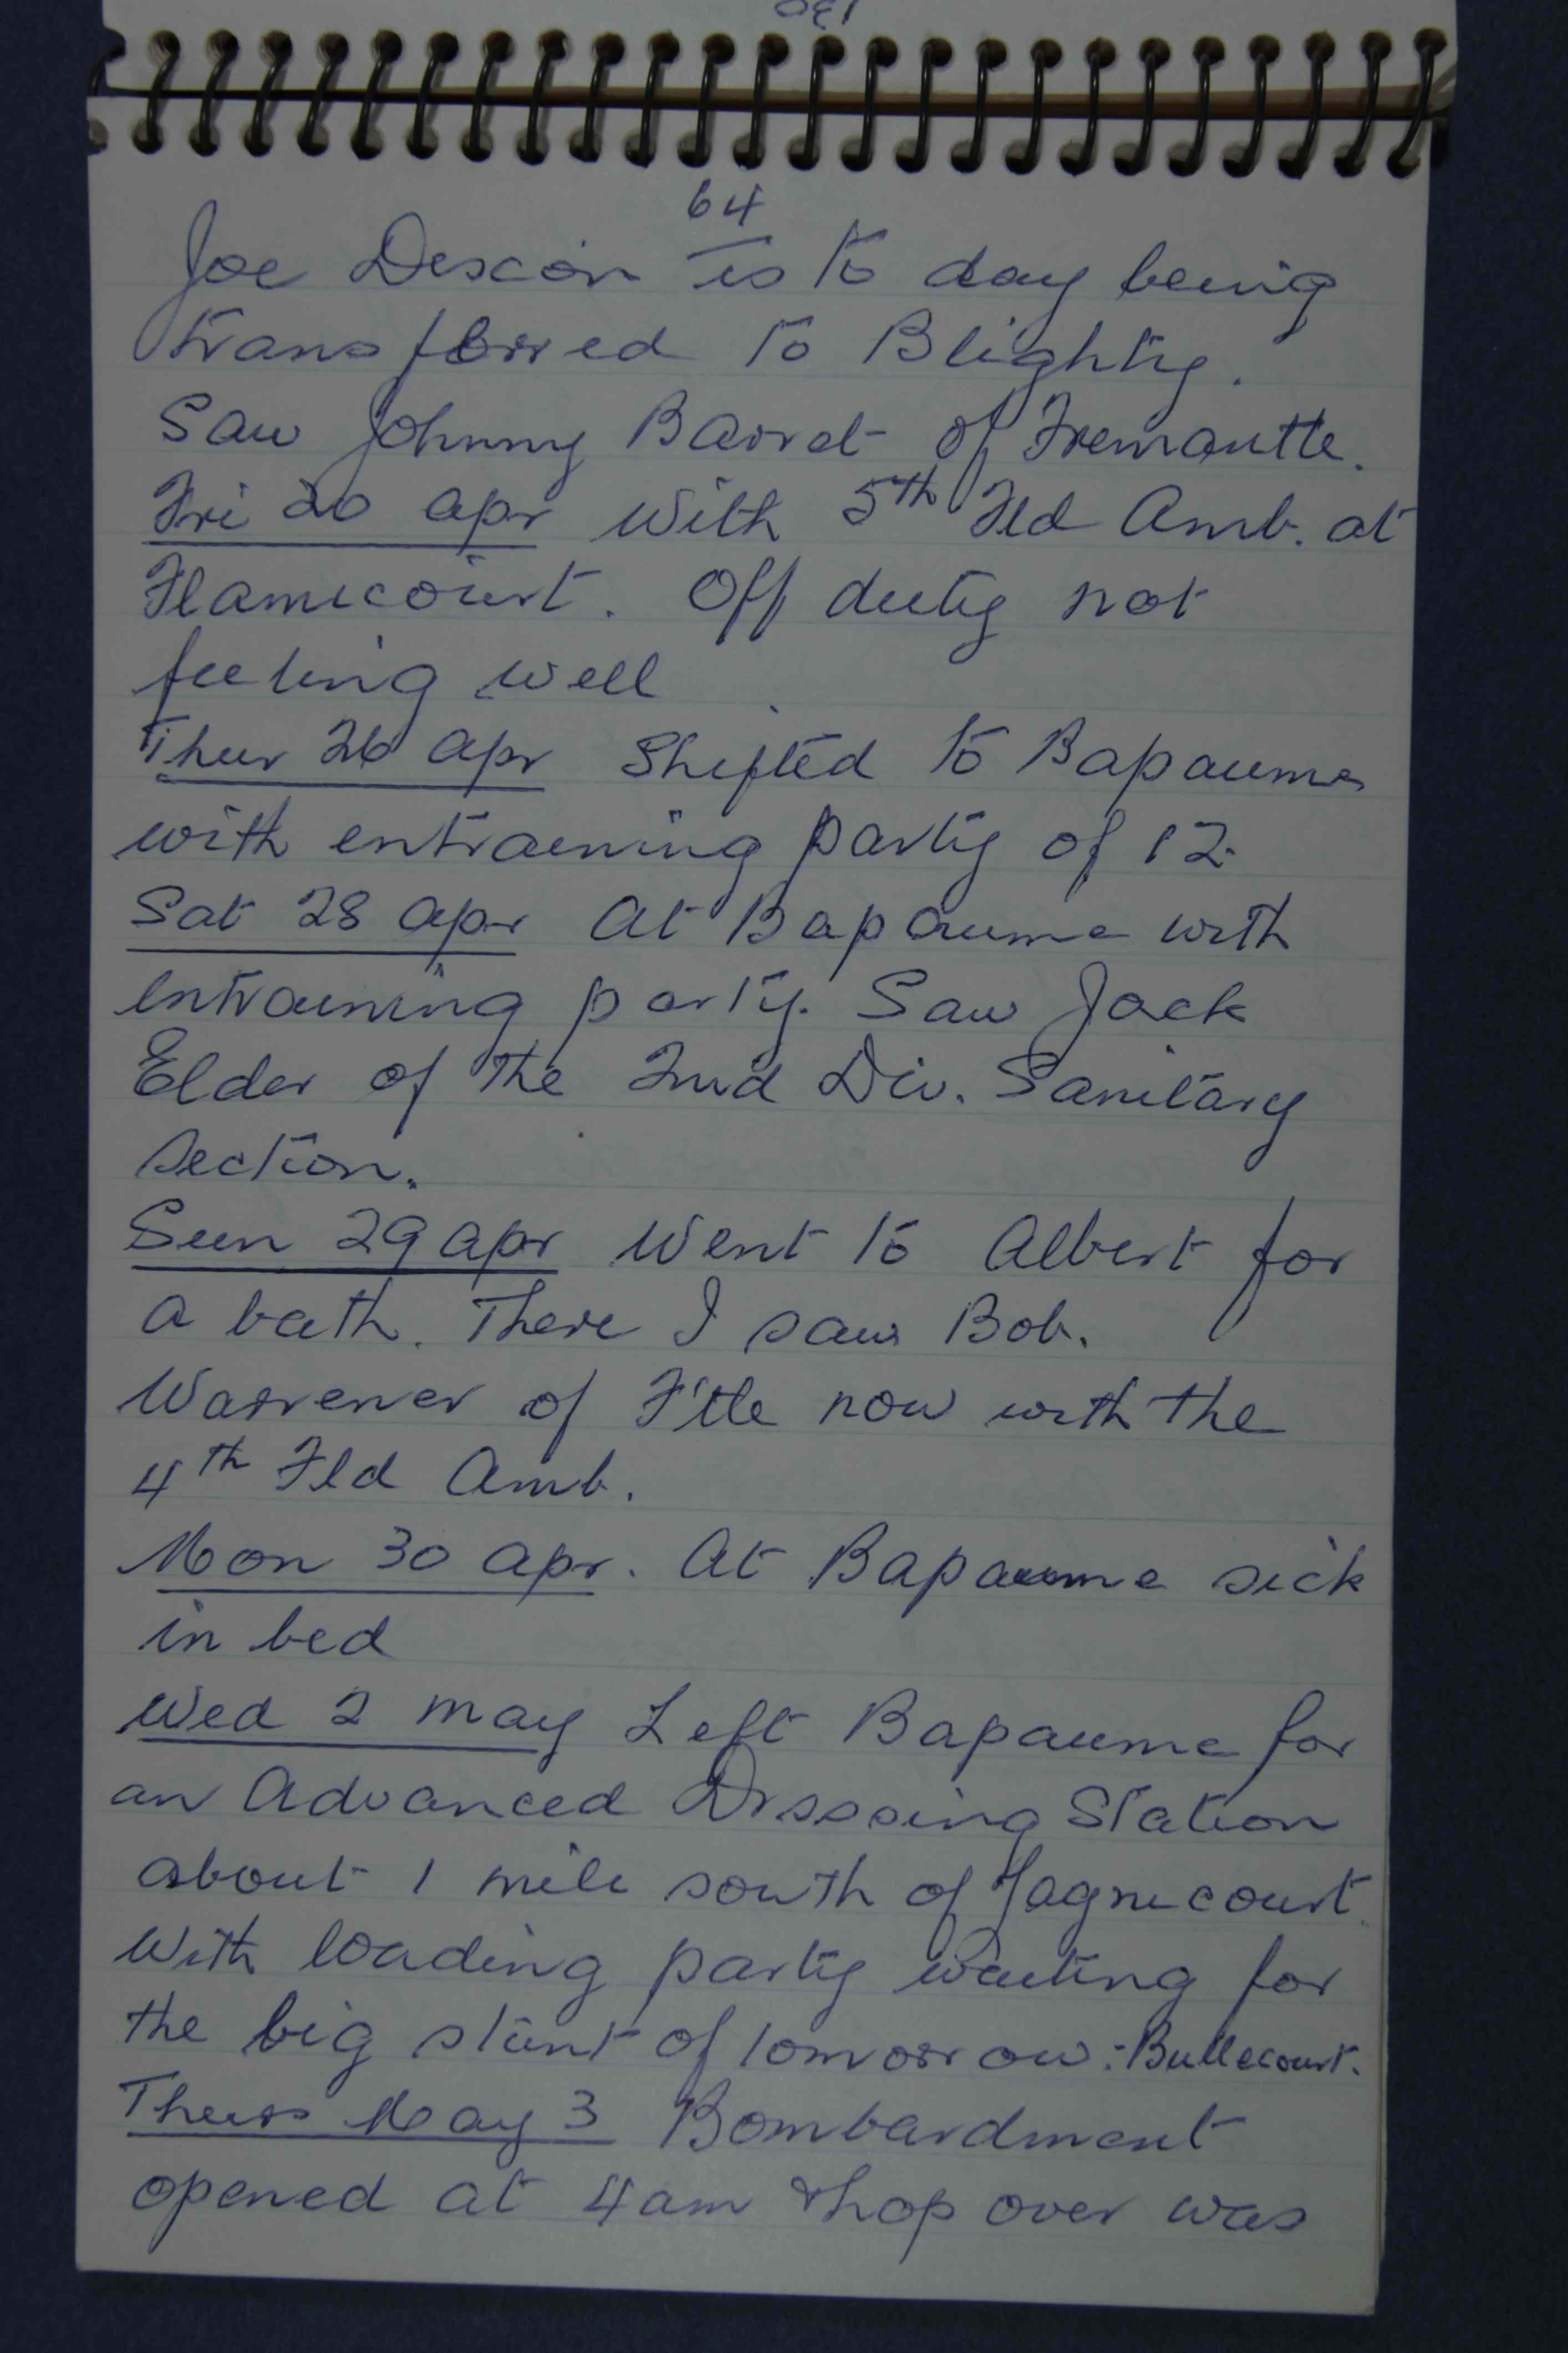 64
Joe Dexcon is to day being
transferred to Blighty.
Saw Johnny Barret of Fremantle.
Fri 20 Apr With 5th Fld Amb. at
Flamicourt. Off duty not
feeling well
Thur 26 Apr Shifted to Bapaume
with entraining party of 12.
Sat 28 Apr At Bapaume with
entraining party. Saw Jack
Elder of the 2nd Div. Sanitary
Section.
Sun 29 Apr Went to Albert for
a bath. There I saw Bob.
Warrener of F'tle now with the
4th Fld Amb.
Mon 30 Apr. At Bapaume sick
in bed
Wed 2 May Left Bapaume for
an Advanced Drsssing Station
about 1 mile south of
With loading party waiting for
the big stunt of tomorrow :- Bullecourt.
Thurs May 3 Bombardment
opened at 4am & hop over was